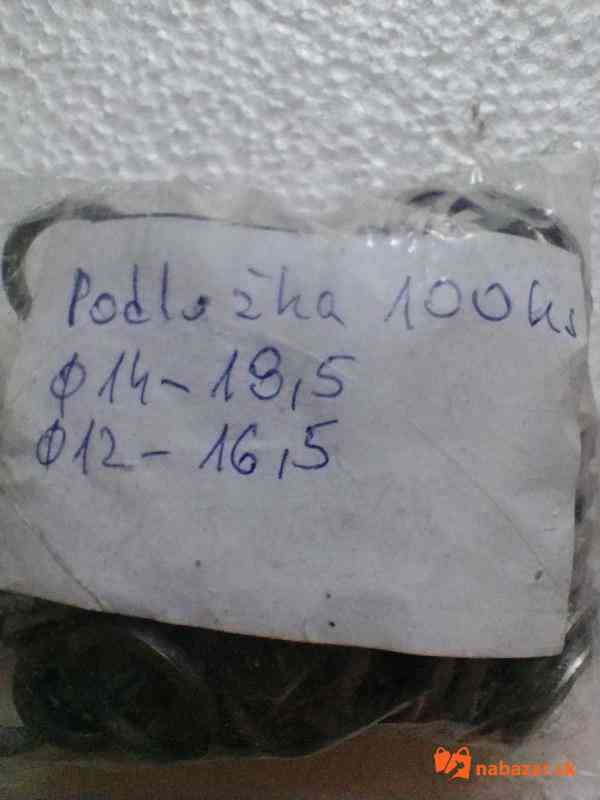 Podložka 100ks
φ14-19,5
φ12-16,5
nabazar.sk